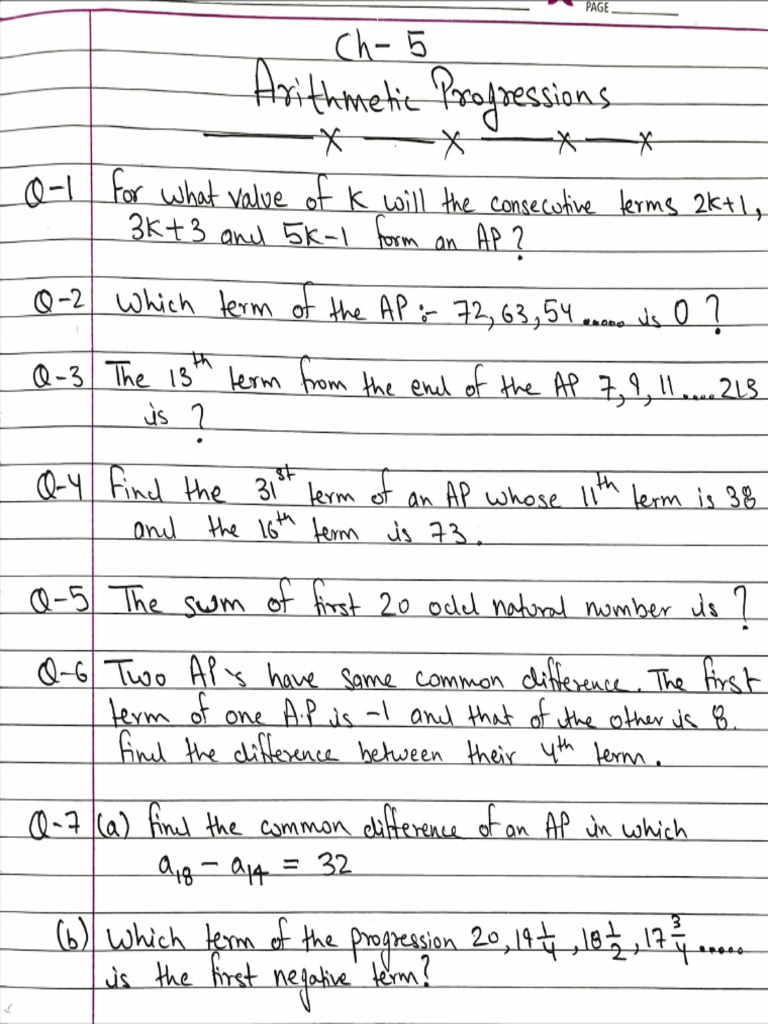 PAGE
Ch- 5
Arithmetic Progressions
Q-1 For what value of K will the consecutive terms 2K+1,
3K+3 and 5K-1 form an AP?
Q-2 Which term of the AP:- 72, 63, 54 ...... is 0 ?
Q-3 The 13th term from the end of the AP 7, 9, 11 .... 213
is ?
Q-4 Find the 31st term of an AP whose 11th term is 38
and the 16th term is 73.
Q-5 The sum of first 20 odd natural number is ?
Q-6 Two AP's have same common difference. The first
term of one A.P is -1 and that of the other is 8.
Find the difference between their 4th term.
Q-7 (a) Find the common difference of an AP in which
a18 - a14 = 32
(b) Which term of the progression 20, 19 1/4, 18 1/2, 17 3/4 .....
is the first negative term?